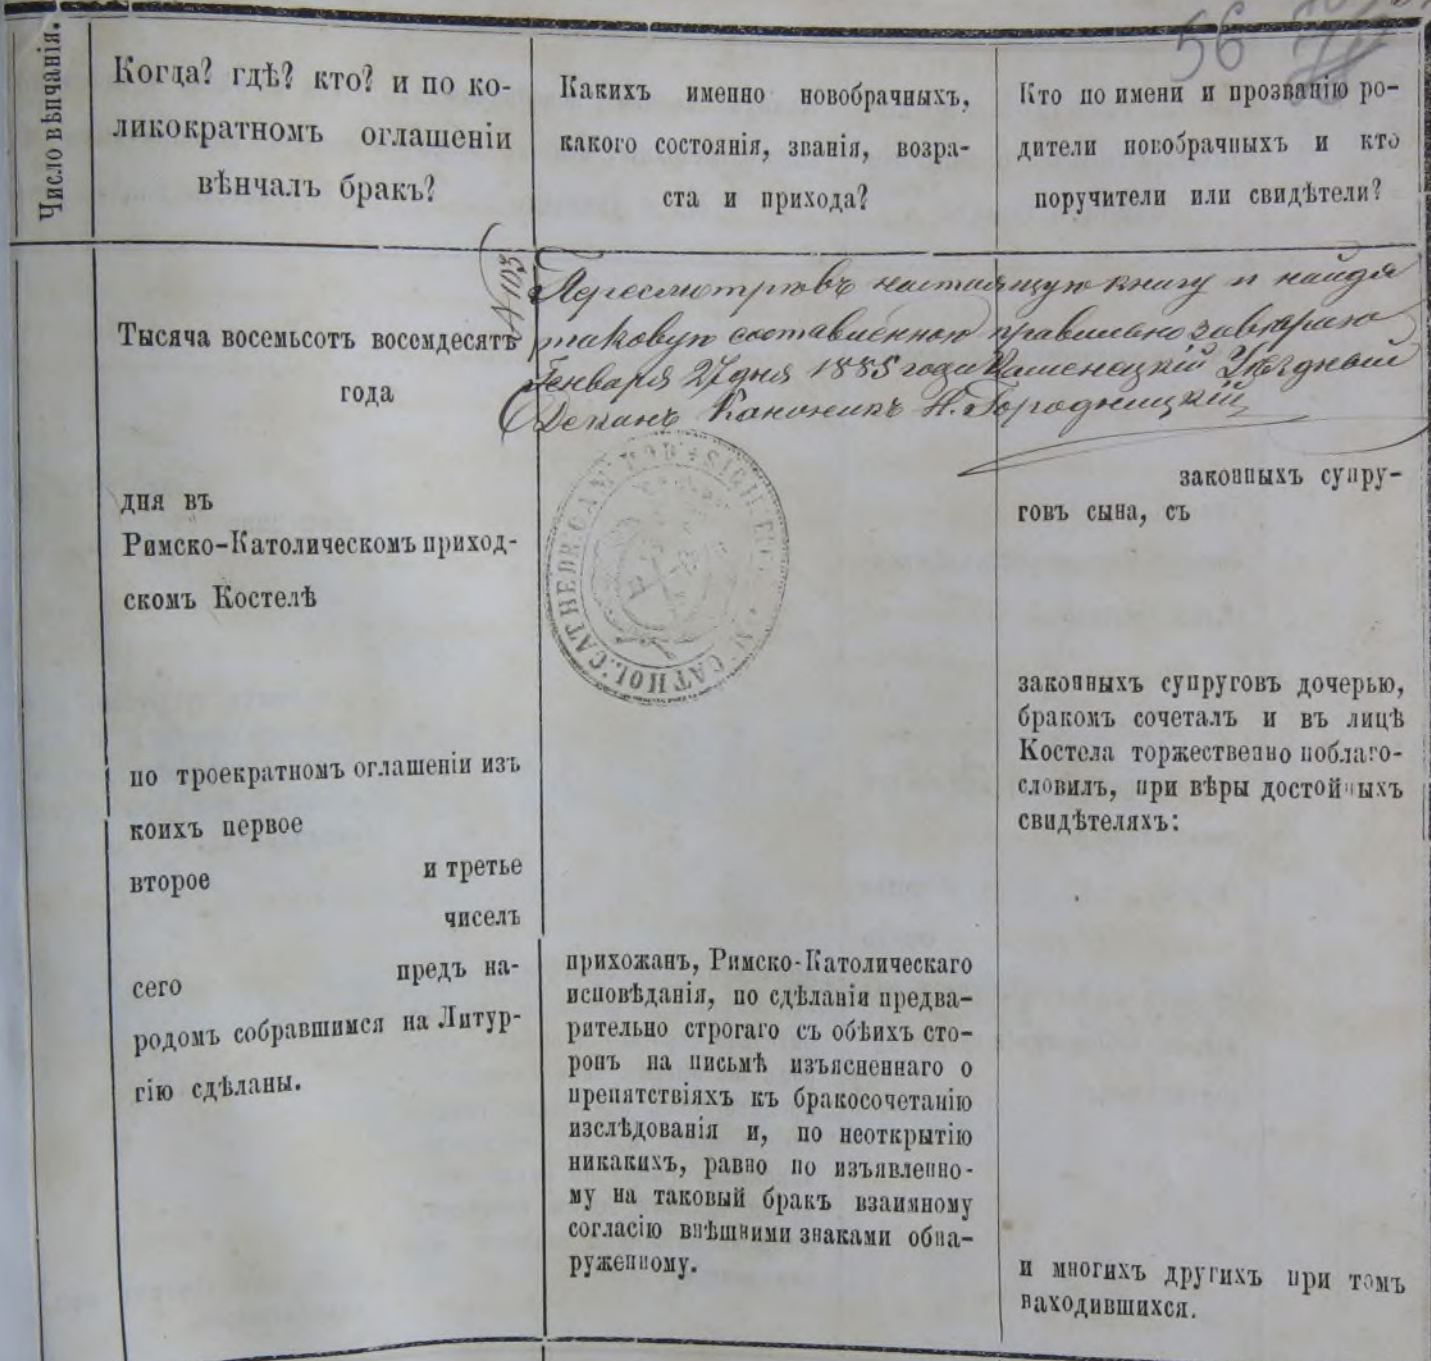 56
Число вѣнчанія.
Когда? гдѣ? кто? и по ко-
ликократномъ оглашеніи
вѣнчалъ бракъ?
Какихъ именно новобрачныхъ,
какого состоянія, званія, возра-
ста и прихода?
Кто по имени и прозванію ро-
дители новобрачныхъ и кто
поручители или свидѣтели?
№ 103
Пересмотрѣвъ настоящую книгу и найдя
таковую составленною правильно завѣряю
Генваря 27 дня 1885 года Каменецкій Уѣздный
Деканъ Каноникъ Н. Городницкій
Тысяча восемьсотъ восемдесятъ
года
дня въ
Римско-Католическомъ приход-
скомъ Костелѣ
по троекратномъ оглашеніи изъ
коихъ первое
второе и третье
чиселъ
сего предъ на-
родомъ собравшимся на Литур-
гію сдѣланы.
CATHOL. CATHEDR. CAM
прихожанъ, Римско-Католическаго
исповѣданія, по сдѣланіи предва-
рительно строгаго съ обѣихъ сто-
ронъ на письмѣ изъясненнаго о
препятствіяхъ къ бракосочетанію
изслѣдованія и, по неоткрытію
никакихъ, равно по изъявленно-
му на таковый бракъ взаимному
согласію внѣшними знаками обна-
руженному.
законныхъ супру-
говъ сына, съ
законныхъ супруговъ дочерью,
бракомъ сочеталъ и въ лицѣ
Костела торжественно поблаго-
словилъ, при вѣры достойныхъ
свидѣтеляхъ:
и многихъ другихъ при томъ
находившихся.